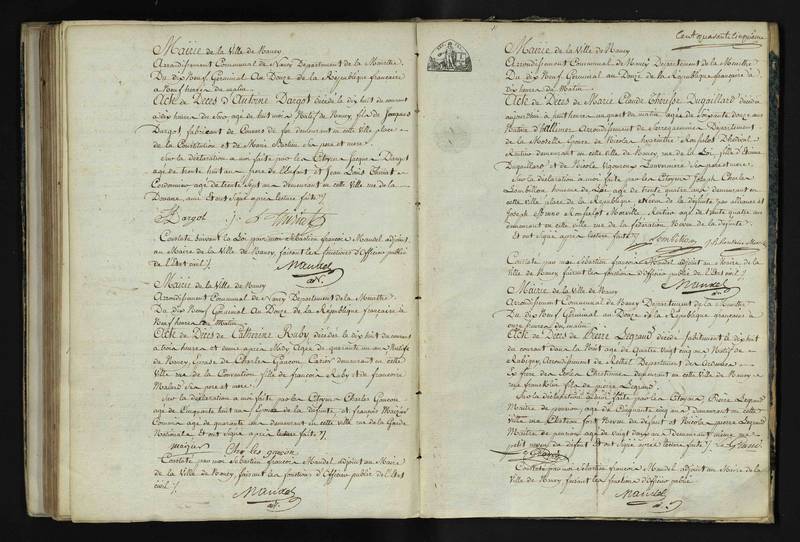 Mairie de la Ville de Nancy
Arrondissement Communal de Nancy Département de la Meurthe
Du dix Neuf Germinal An Douze de la République française
à Neuf heures du matin
Acte de Décès d'Antoine Dargot décédé le dix huit du courant
à dix heures du Soir agé de huit mois Natif de Nancy, fils de Jacques
Dargot fabricant de de demeurant en cette ville place
de la Constitution et de Marie Ses père et mere.
Sur la déclaration à moi faite par les Citoyens Jacques Dargot
agé de trente huit ans père de l'Enfant et Jean Louis
Cordonnier agé de trente Sept ans demeurant en cette Ville rue de la
Douane, qui Et ont Signé après lecture faite ./.
Dargot
Constaté Suivant la Loi par moi Sébastien françois Mandel adjoint
au Maire de la Ville de Nancy, faisant les fonctions d'Officier public
de l'Etat civil ./.
Mandel
adt.
Mairie de la Ville de Nancy
Arrondissement Communal de Nancy Département de la Meurthe
Du dix Neuf Germinal An Douze de la République française à
Neuf heures du Matin
Acte de Décès de Catherine Ruby décédée le dix huit du courant
à trois heures et demie après Midy Agée de quarante un ans Native
de Nancy, Epouse de Charles Gascon demeurant en cette
Ville rue de la Convention fille de françois Ruby et de françoise
Malard Ses père et mere.
Sur la déclaration à moi faite par les Citoyens Charles Gascon
agé de Cinquante huit ans Epoux de la défunte et françois Maigrié
agé de quarante ans demeurant en cette ville rue de la Garde
Nationale Et ont Signé après lecture faite ./.
Charles gascon
Constaté par moi Sébastien françois Mandel adjoint au Maire
de la Ville de Nancy, faisant les fonctions d'Officier public de l'Etat
civil ./.
Mandel
adt.
Cent quarante cinquième
Mairie de la Ville de Nancy
Arrondissement Communal de Nancy Département de la Meurthe
Du dix Neuf Germinal an Douze de la République française à
dix heures du Matin
Acte de Décès de Marie Claude Thérèse Dugaillard décédée
aujourdhui à huit heures un quart du matin agée de Soixante douze ans
Native d' Arrondissement de Sarreguemines Département
de la Moselle Epouse de Nicolas hyacinthe
Rentier demeurant en cette ville de Nancy rue de la Loi, fille d'
Dugaillard et de Nicole Ses père et mere.
Sur la déclaration à moi faite par les Citoyens Joseph Charles
homme de Loi agé de trente quatre ans demeurant en
cette ville place de la République neveu de la défunte par alliance et
Joseph Rentier agé de trente quatre ans
demeurant en cette ville rue de la fédération Neveu de la défunte
Et ont Signé après lecture faite ./.
Constaté par moi Sébastien françois Mandel adjoint au Maire de la
Ville de Nancy faisant les fonctions d'Officier public de l'Etat civil ./.
Mandel
adt.
Mairie de la Ville de Nancy
Arrondissement Communal de Nancy Département de la Meurthe
Du dix Neuf Germinal An Douze de la République française à
onze heures du matin.
Acte de Décès de Pierre Legrand décédé le dix huit
du courant de la Nuit agé de Quatre Vingt cinq ans Natif de
Arrondissement de Rethel Département des Ardennes
demeurant en cette ville de Nancy
rue franklin fils de pierre Legrand.
Sur la déclaration à moi faite par les Citoyens Pierre Legrand
Maître de pension, agé de Cinquante cinq ans demeurant en cette
ville rue Chateau fort Neveu du défunt et Nicolas pierre Legrand
Maître de pension agé de vingt deux ans demeurant même rue
petit neveu du défunt Et ont Signé après lecture faite ./.
Legrand
Constaté par moi Sébastien françois Mandel adjoint au Maire de la
Ville de Nancy faisant les fonctions d'Officier public
Mandel
adt.